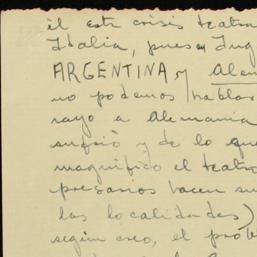 él este crisis teatra
Italia, pues en Ing
ARGENTINA y Alem
no podemos hablar
rayo a Alemania
sufrió y de lo que
magnífico el teatro
presarios hacen su
las localidades)
según creo, el prob